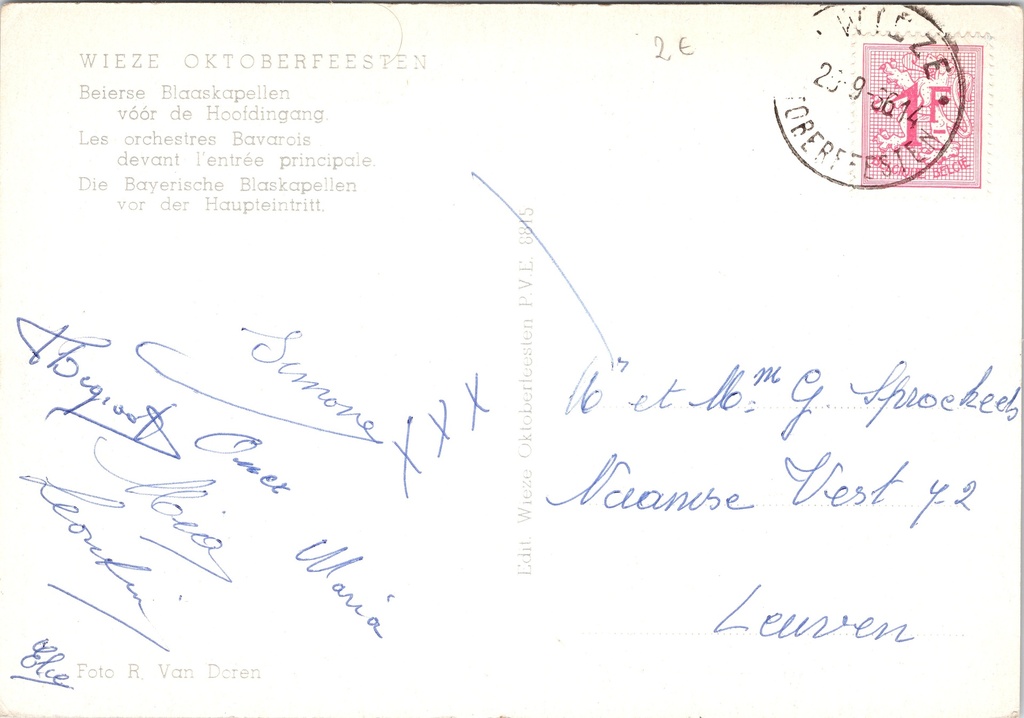 WIEZE OKTOBERFEESTEN
Beierse Blaaskapellen
vóór de Hoofdingang.
Les orchestres Bavarois
devant l'entrée principale.
Die Bayerische Blaskapellen
vor der Haupteintritt.
2 €
WIEZE
-9-66 14
OBERFEESTEN
1F
BELGIE
Edit. Wieze Oktoberfeesten P.V.E. 8815
Simone
XXX
Mia
Maria
Mr et Mm G. Sproekeels
Naamse Vest 72
Leuven
Foto R. Van Doren